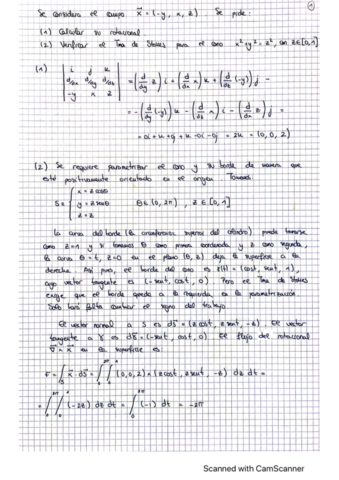 ①
Se considera el campo x⃗ = (-y, x, z). Se pide:
(1) Calcular su rotacional
(2) Verificar el Tma de Stokes para el cono x²+y²=z², con z∈[0,1]
(1) | i j k |
| d/dx d/dy d/dz | = (d/dy z) i + (d/dx x) k + (d/dz (-y)) j -
| -y x z |
- (d/dy (-y)) k - (d/dz x) i - (d/dx z) j =
= 0i + k + 0j + k - 0i - 0j = 2k = (0, 0, 2)
(2) Se requiere parametrizar el cono y su borde de manera que
esté positivamente orientado en el origen Tomamos
x = z cosθ
S ≡ { y = z senθ θ∈(0, 2π), z∈[0,1]
z = z
La curva del borde (la circunferencia superior del cilindro) puede tomarse
como z=1 y si tomamos θ como primera coordenada y z como segunda,
la curva θ = t, z=0 en el plano (θ, z) deja la superficie a la
derecha. Así pues, el borde del cono es r(t) = (cost, sent, 1),
cuyo vector tangente es (-sent, cost, 0). Pero el Tma de Stokes
exige que el borde quede a la izquierda, en la parametrización.
Solo hará falta cambiar el signo del trabajo.
El vector normal a S es dS⃗ = (z cost, z sent, -z). El vector
tangente a γ es dγ⃗ = (-sent, cost, 0). El flujo del rotacional
∇⃗ × x⃗ en la superficie es:
F = ∫ x⃗ · dS⃗ = ∫∫ (0,0,2) × (z cost, z sent, -z) dz dt =
= ∫∫ (-2z) dz dt = ∫ (-1) dt = -2π
Scanned with CamScanner